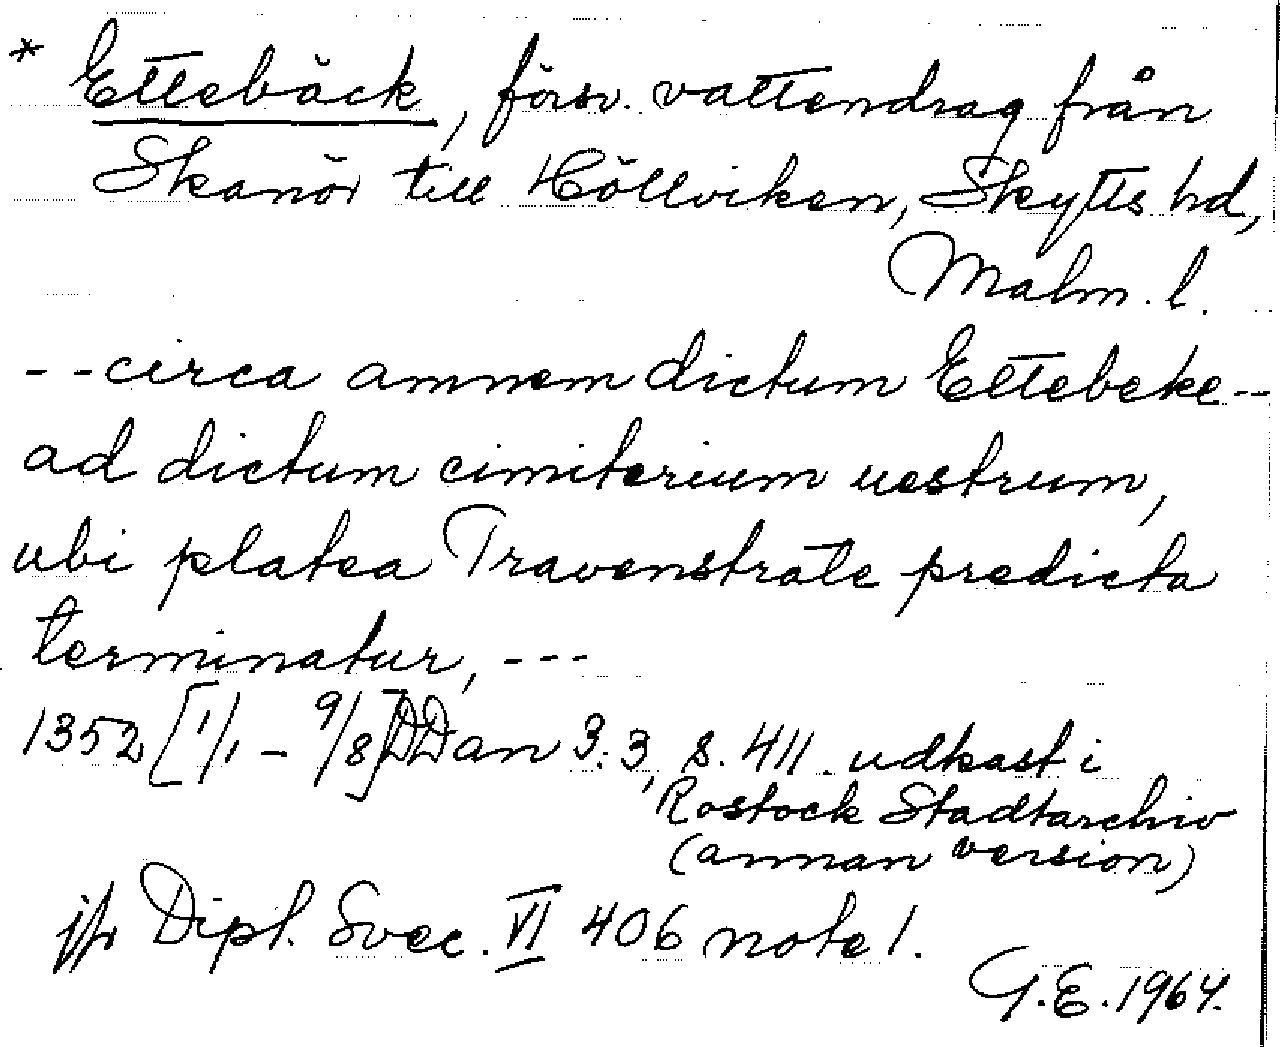 * Ettebäck, försv. vattendrag från
Skanör till Höllviken, Skytts hd,
Malm. l.
- - circa amnem dictum Ettebeke --
ad dictum cimiterium uestrum,
ubi platea Travenstrate predicta
terminatur, ---
1352 [1/1 - 9/8] DDan 3:3, s. 411. udkast i
Rostock Stadtarchiv
(annan version)
jfr Dipl. Svec. VI 406 note 1.
G.E. 1964.